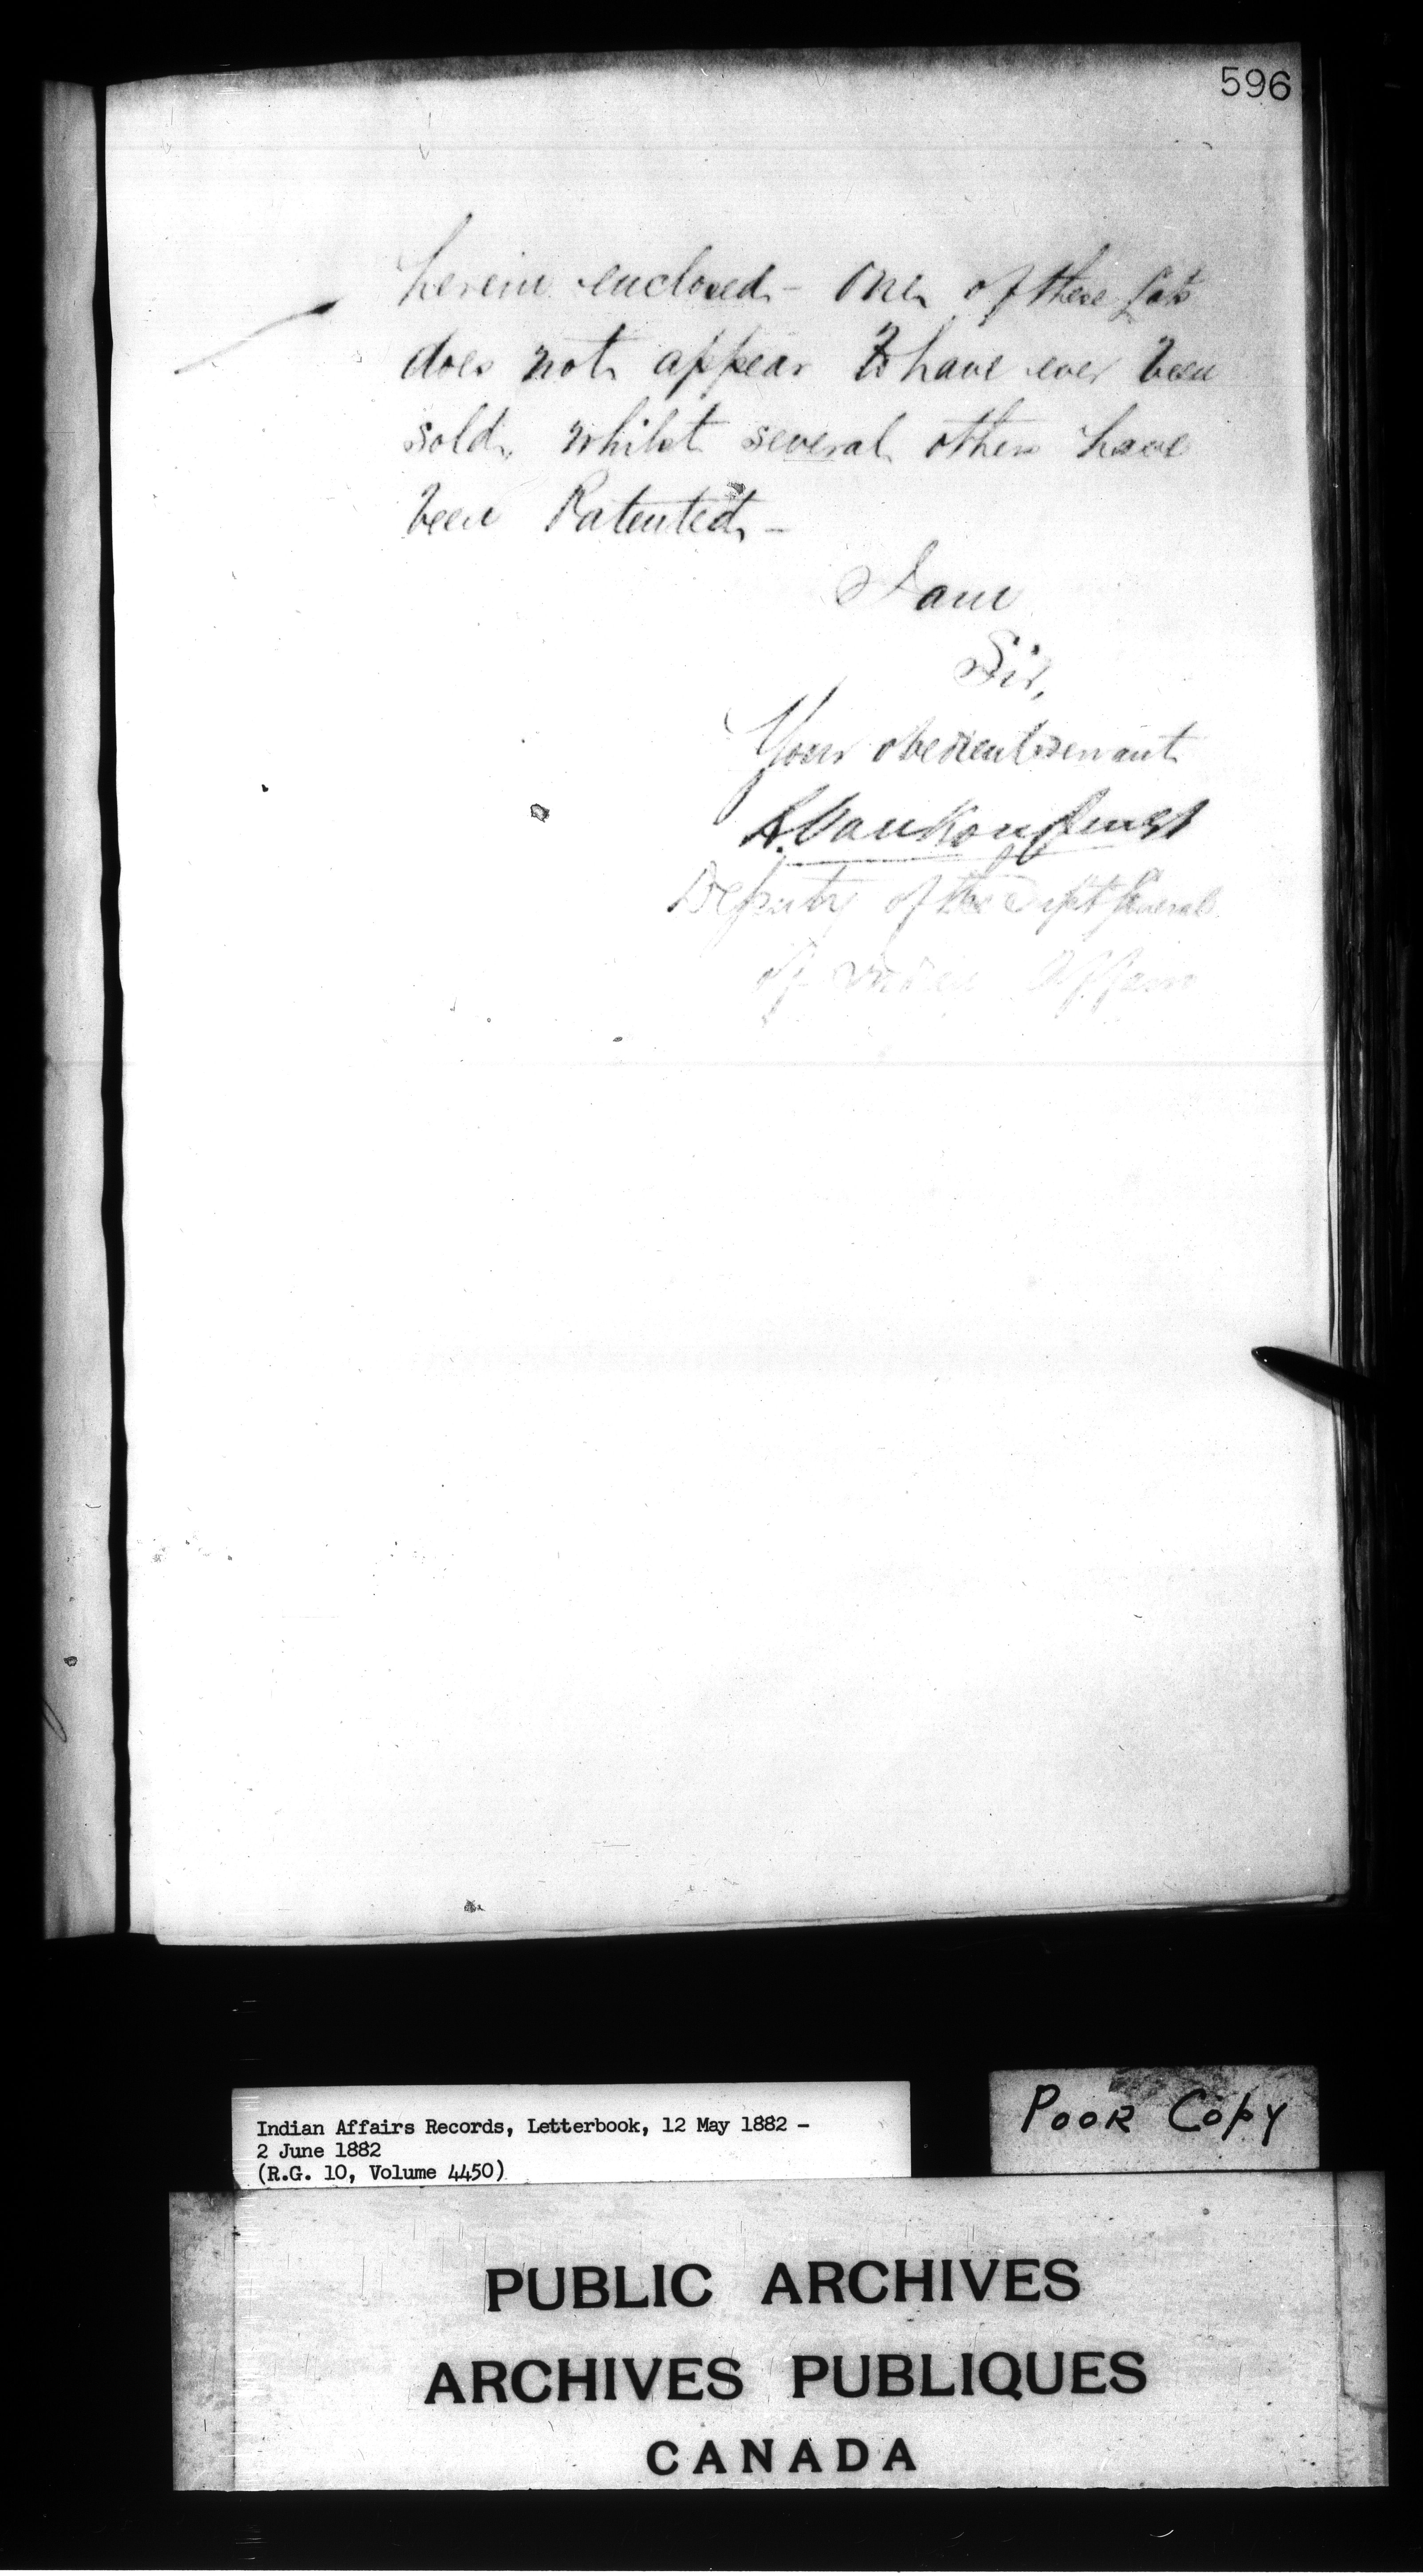 596
herein enclosed - One of these Lots
does not appear to have ever been
sold, whilst several others have
been Patented -
I am
Sir,
Your obedient servant
L. VanKoughnet
Deputy of the Supt General
of Indian Affairs
Indian Affairs Records, Letterbook, 12 May 1882 -
2 June 1882
(R.G. 10, Volume 4450)
POOR COPY
PUBLIC ARCHIVES
ARCHIVES PUBLIQUES
CANADA